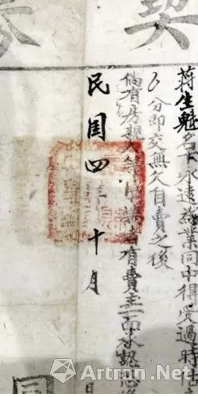 契
蒋生魁名下永远為業同中得受過時
分即交無欠自賣之後
倘有房親
有賣主一面承認恐後
民国四年十月
日
同
Artron.Net